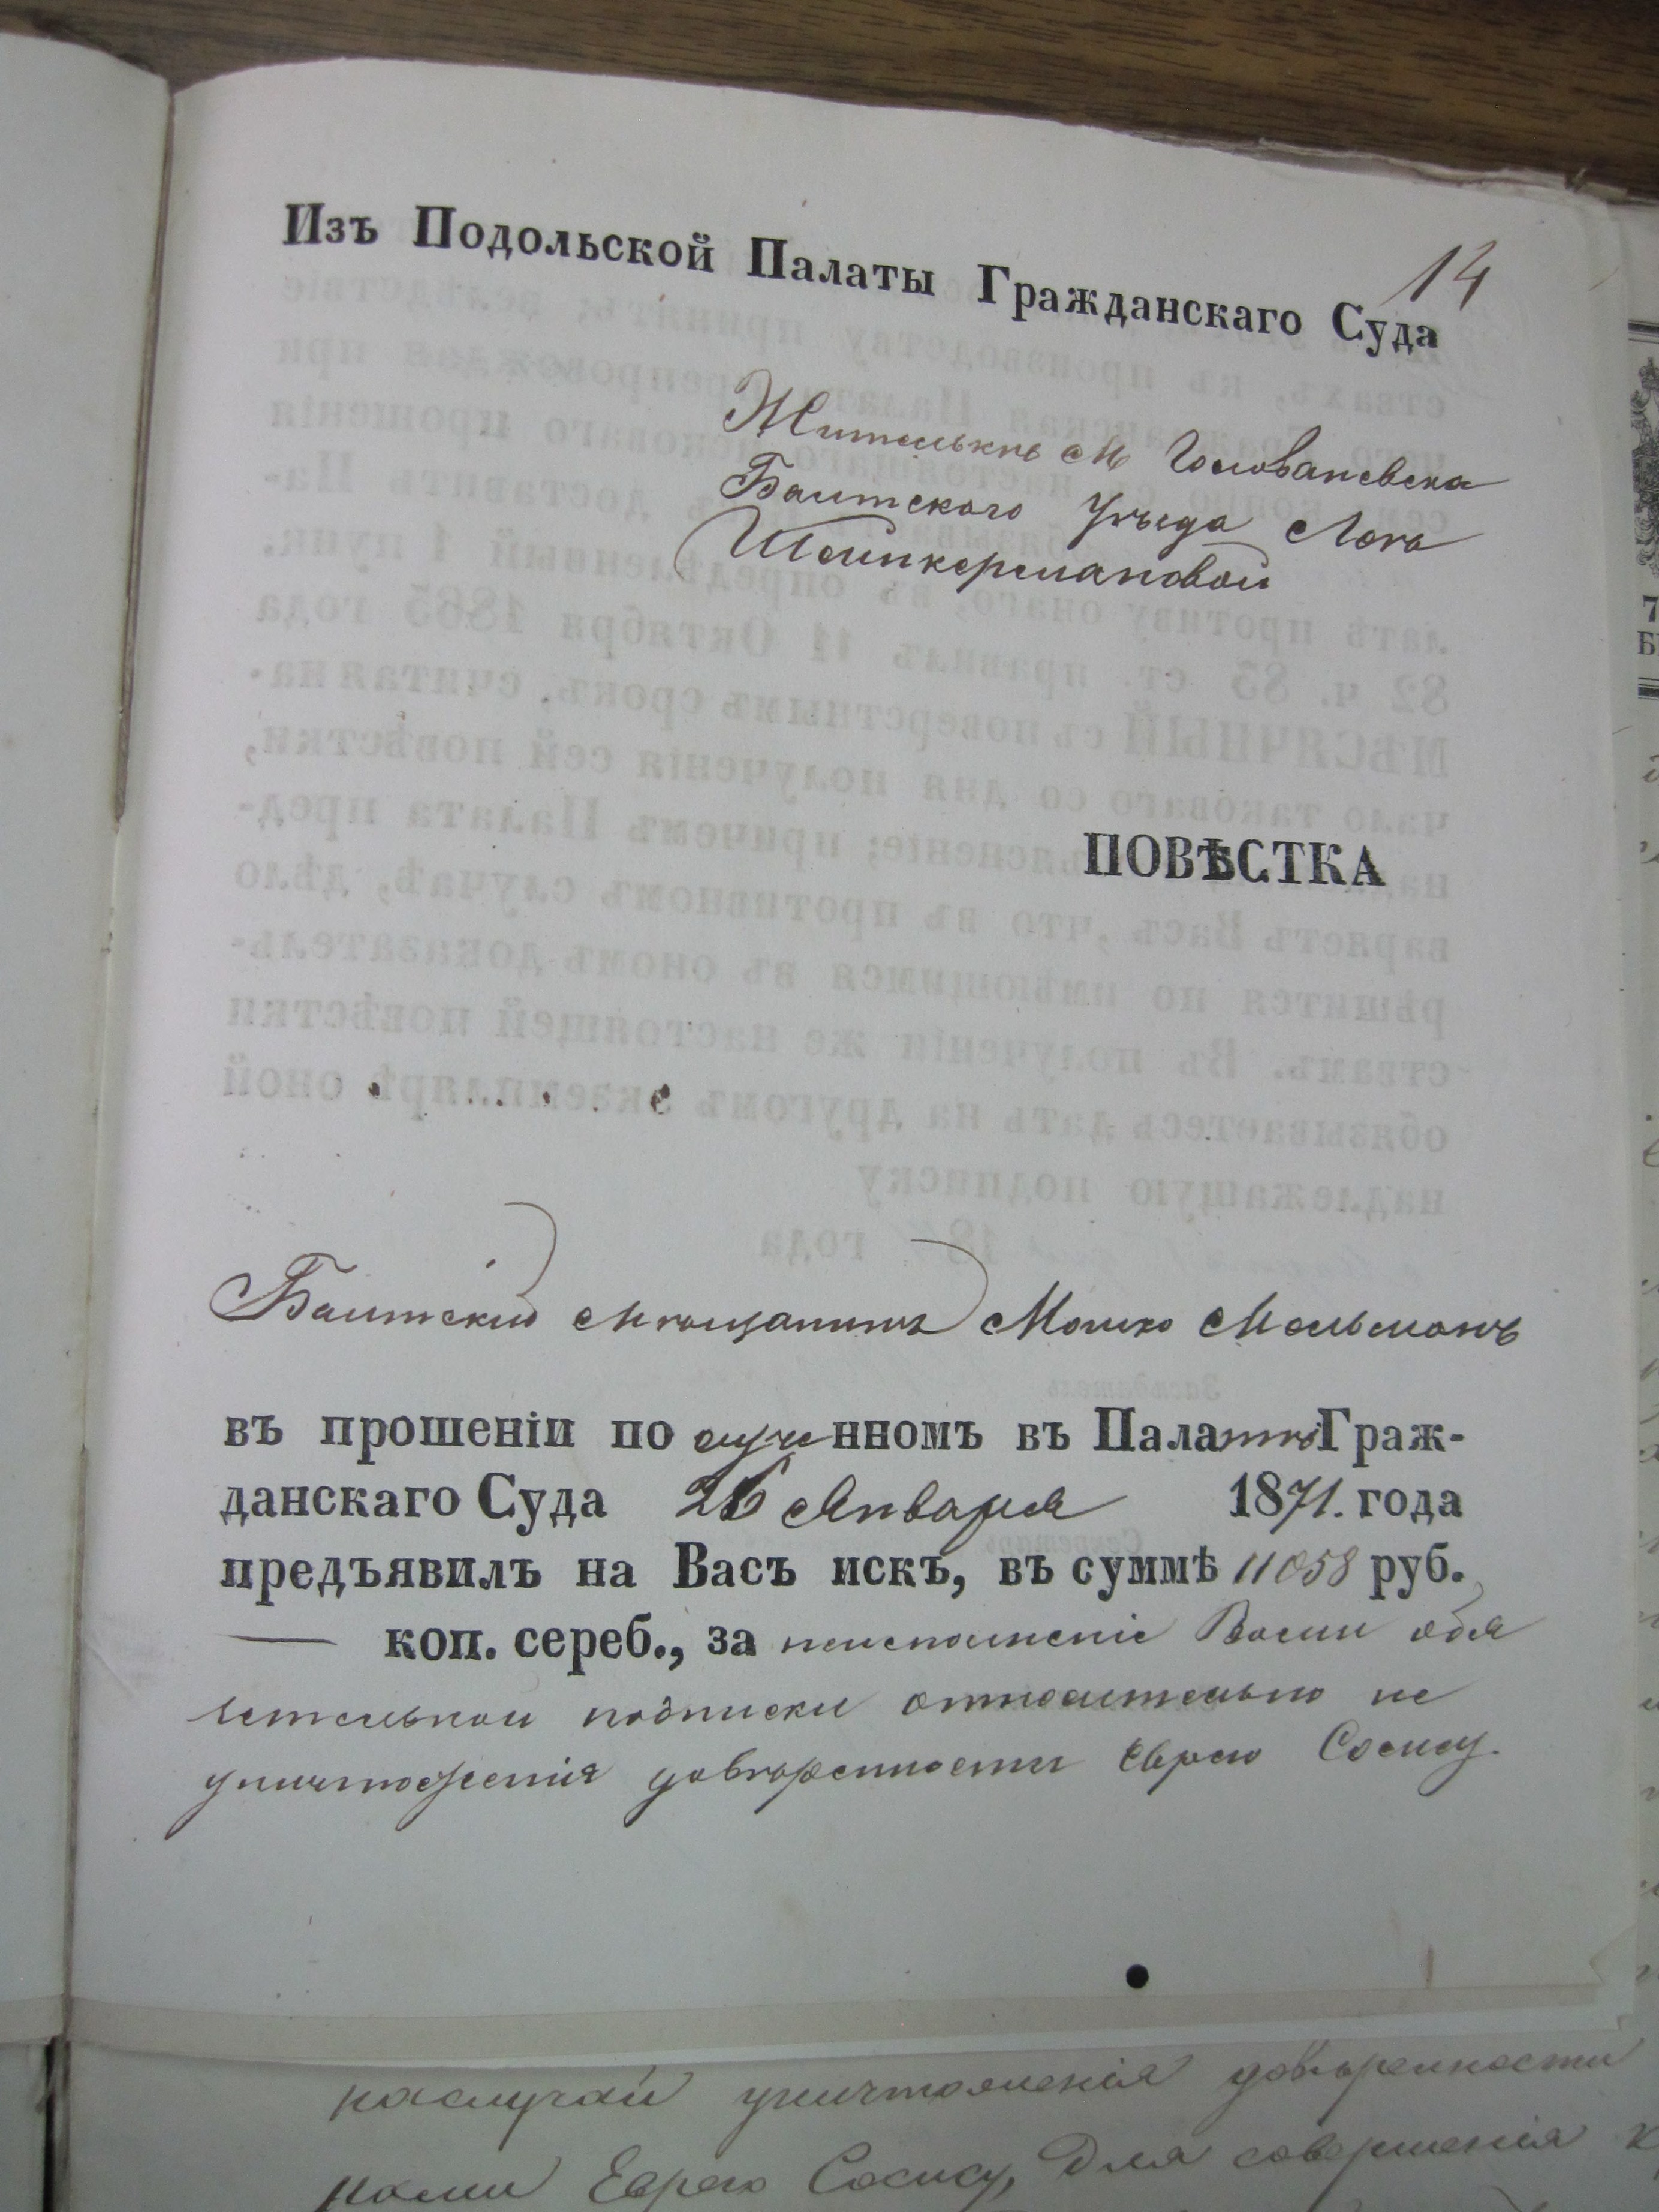 Изъ Подольской Палаты Гражданскаго Суда
14
Жительке м Голованевска
Балтского Уѣзда Лее
Шейнкермановой
ПОВѢСТКА
Балтский мѣщанинъ Мошко Мельманъ
въ прошеніи полученномъ въ Палатѣ Граж-
данскаго Суда 26 Января 1871. года
предъявилъ на Васъ искъ, въ суммѣ 11058 руб.
— коп. сереб., за неисполненіе Вами обя
зательной подписки относительно не
уничтоженія довѣренности Еврею Сосису.
наслучай уничтоженія довѣренности
нами Еврею Сосису, для совершенія